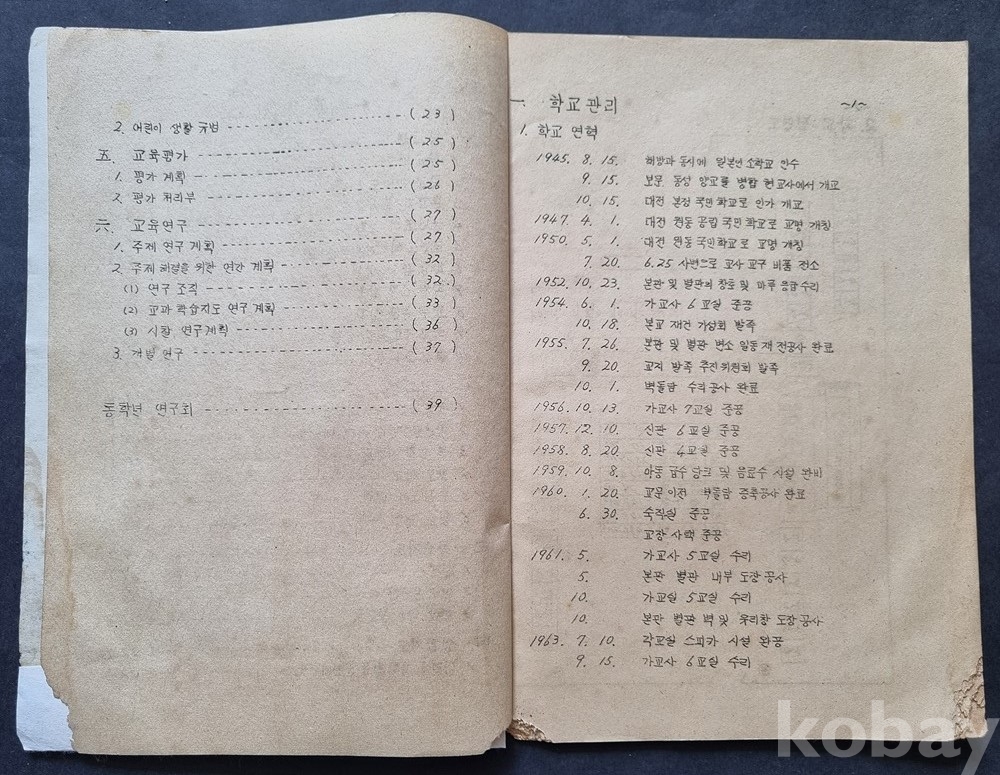 2. 어린이 생활 규범 ---------- ( 23 )
五. 교육평가 ---------- ( 25 )
1. 평가 계획 ---------- ( 25 )
2. 평가 처리부 ---------- ( 26 )
六. 교육연구 ---------- ( 27 )
1. 주제 연구 계획 ---------- ( 27 )
2. 주제 해결을 위한 연간 계획 ---------- ( 32 )
(1) 연구 조직 ---------- ( 32 )
(2) 교과 학습지도 연구 계획 ---------- ( 33 )
(3) 시청 연구계획 ---------- ( 36 )
3. 개별 연구 ---------- ( 37 )
동학년 연구회 ---------- ( 39 )
一. 학교관리 ~1~
1. 학교 연혁
1945. 8. 15. 해방과 동시에 일본인 소학교 인수
9. 15. 보문 동성 양교를 병합 현교사에서 개교
10. 15. 대전 본정 국민 학교로 인가 개교
1947. 4. 1. 대전 원동 공립 국민 학교로 교명 개칭
1950. 5. 1. 대전 원동 국민학교로 교명 개칭
7. 20. 6.25 사변으로 교사 교구 비품 전소
1952. 10. 23. 본관 및 별관의 창호 및 마루 응급수리
1954. 6. 1. 가교사 6교실 준공
10. 18. 본교 재건 기성회 발족
1955. 7. 26. 본관 및 별관 변소 일동 재건공사 완료
9. 20. 교지 발족 추진위원회 발족
10. 1. 벽돌담 수리공사 완료
1956. 10. 13. 가교사 7교실 준공
1957. 12. 10. 신관 6교실 준공
1958. 8. 20. 신관 4교실 준공
1959. 10. 8. 아동 급수 탕크 및 음료수 시설 완비
1960. 1. 20. 교문이전 벽돌담 증축공사 완료
6. 30. 숙직실 준공
교장 사택 준공
1961. 5. 가교사 5교실 수리
5. 본관 별관 내부 도장공사
10. 가교실 5교실 수리
10. 본관 별관 벽 및 유리창 도장공사
1963. 7. 10. 각교실 스피카 시설 완공
9. 15. 가교사 6교실 수리
kobay